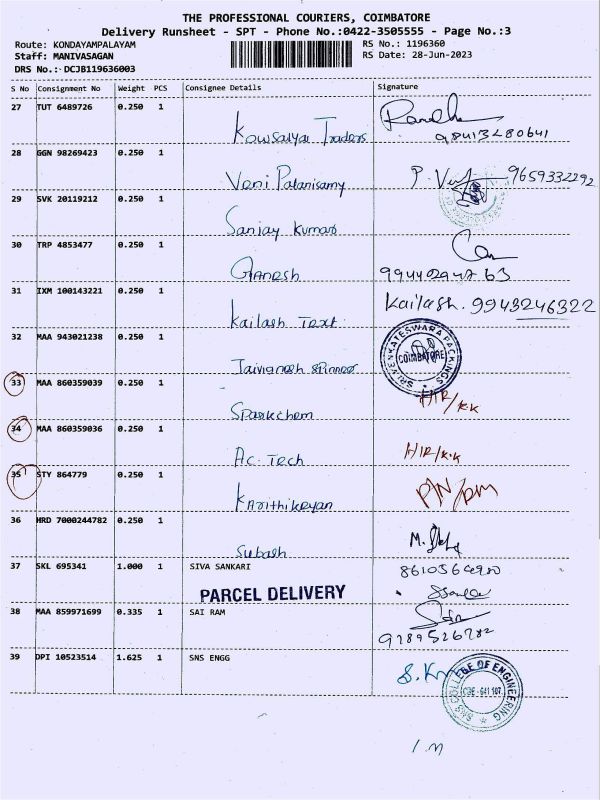 THE PROFESSIONAL COURIERS, COIMBATORE
Delivery Runsheet - SPT - Phone No.:0422-3505555 - Page No.:3
Route: KONDAYAMPALAYAM RS No.: 1196360
Staff: MANIVASAGAN RS Date: 28-Jun-2023
DRS No.: DCJB119636003
S No Consignment No Weight PCS Consignee Details Signature
27 TUT 6489726 0.250 1
Kowsalya Traders
28 GGN 98269423 0.250 1
Veni Palanisamy 9659332292
29 SVK 20119212 0.250 1
Sanjay Kumar
30 TRP 4853477 0.250 1
Ganesh
31 IXM 100143221 0.250 1 Kailash. 9943246322
Kailash Text
32 MAA 943021238 0.250 1 SRI VENKATESWARA PACKINGS
COIMBATORE
33 MAA 860359039 0.250 1
Sparkchem HIR/KK
34 MAA 860359036 0.250 1
Ac. Tech HIR/K.K
35 STY 864779 0.250 1
Karithikeyan
36 HRD 7000244782 0.250 1
Subash
37 SKL 695341 1.000 1 SIVA SANKARI
PARCEL DELIVERY
38 MAA 859971699 0.335 1 SAI RAM
9789526782
39 DPI 10523514 1.625 1 SNS ENGG
SNS COLLEGE OF ENGINEERING
CBE - 641 107